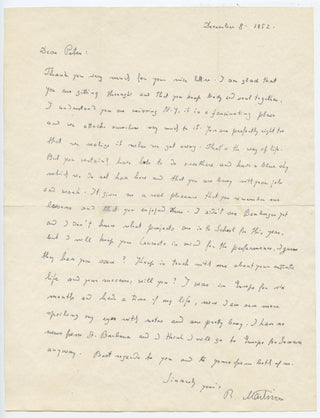 December 8. 1952.
Dear Peter:
Thank you very much for your nice letter. I am glad that
you are getting through and that you keep body and soul together.
I understand you are enjoying N.Y., it is a fascinating place
and we attache ourselves very much to it. You are perfectly right that
we realize it when we get away. That's the way of life.
But you certainly have lots to do overthere and have a blue sky
which we do not have here and that you are busy with your job
and work. It gives me a real pleasure that you remember our
lessons and that you enjoyed them. I didn't see yet
and I don't know what projects are in the School for this year,
but I will keep your Concerto in mind for the performance, I guess
they have your score? Keep in touch with me about your
life and your success, will you? I was in Europe for six
months and had a time of my life, now I am once more
spoiling my eyes with notes and am pretty busy. I have no
news from St. Barbara and I think I will go to Europe for Summer
anyway. Best regards to you and to yours from both of us.
Sincerely yours
B. Martinu